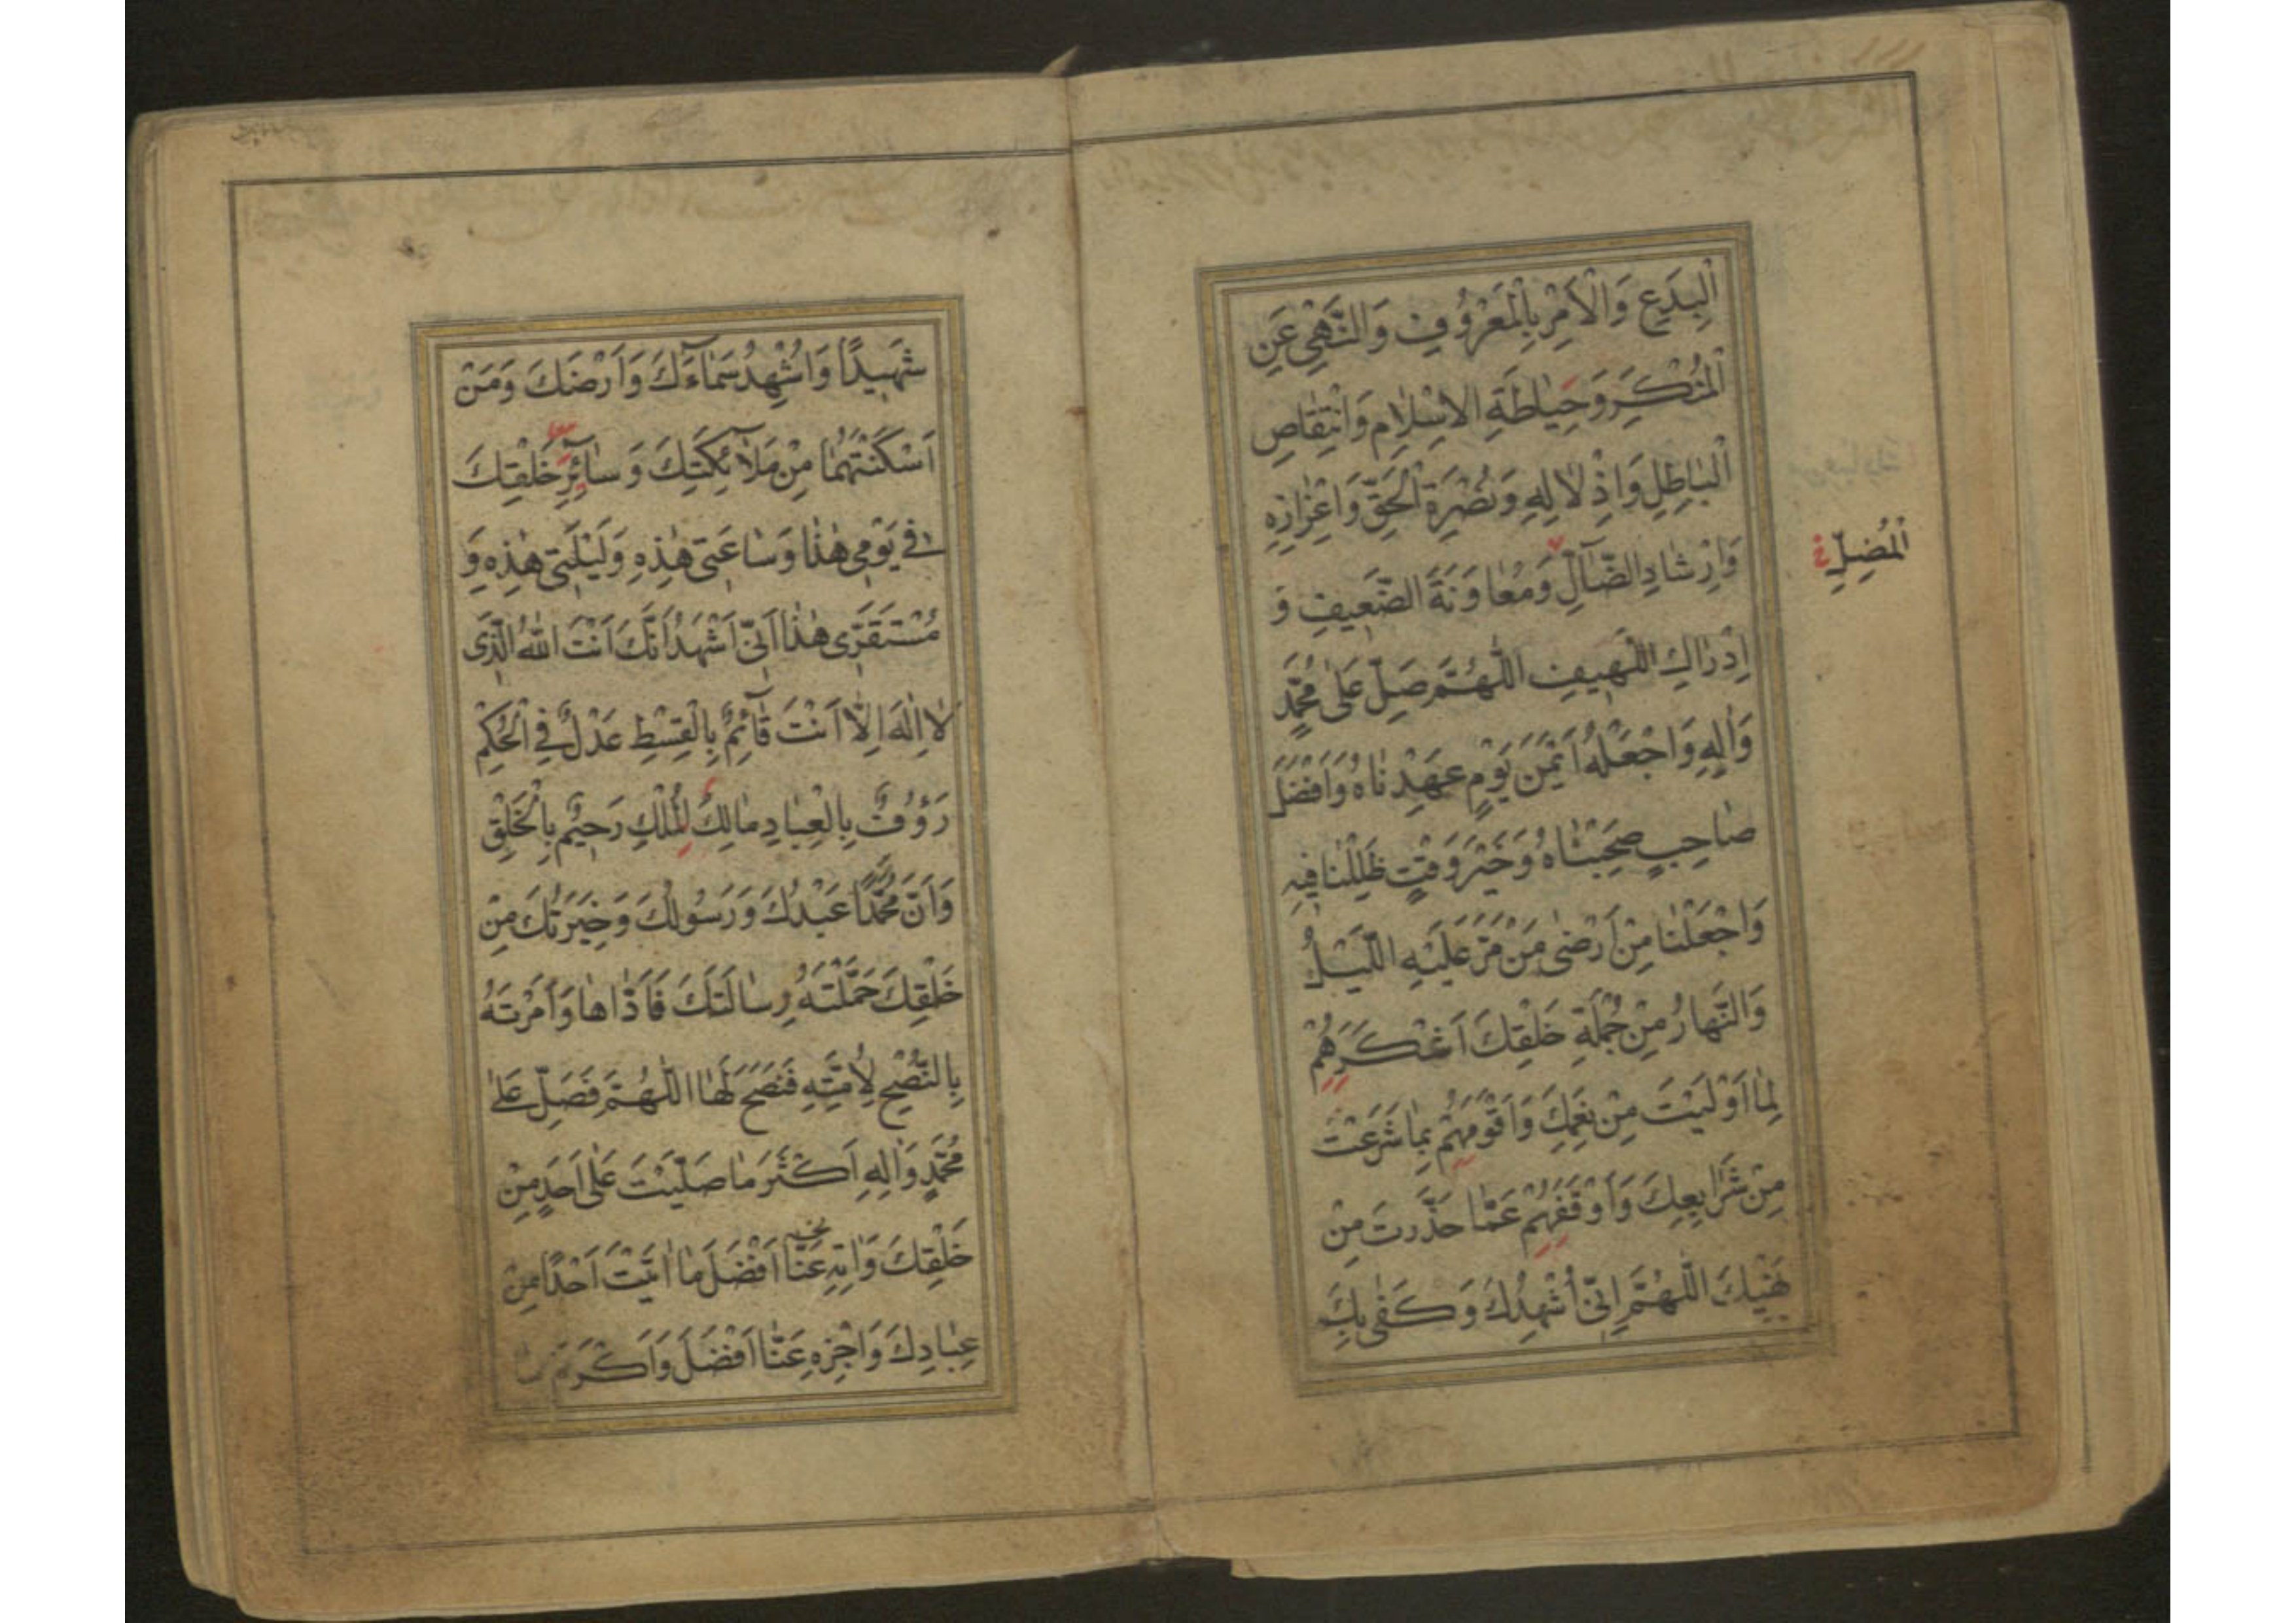 اَلْبِدَعِ وَالْاَمْرِ بِالْمَعْرُوفِ وَالنَّهْيِ عَنِ
الْمُنْكَرِ وَحِيَاطَةِ الْاِسْلَامِ وَانْتِقَاصِ
الْبَاطِلِ وَاِذْلَالِهِ وَنُصْرَةِ الْحَقِّ وَاِعْزَازِهِ
وَاِرْشَادِ الضَّآلِّ وَمُعَاوَنَةَ الضَّعِيفِ وَ
الْمُضِلِّ خ
اِدْرَاكِ اللَّهِيفِ اللَّهُمَّ صَلِّ عَلَى مُحَمَّدٍ
وَاٰلِهِ وَاجْعَلْهُ اَيْمَنَ يَوْمٍ عَهِدْنَاهُ وَاَفْضَلَ
صَاحِبٍ صَحِبْنَاهُ وَخَيْرَ وَقْتٍ ظَلِلْنَا فِيهِ
وَاجْعَلْنَا مِنْ اَرْضَى مَنْ مَرَّ عَلَيْهِ اللَّيْلُ
وَالنَّهَارُ مِنْ جُمْلَةِ خَلْقِكَ اَشْكَرَهُمْ
لِمَا اَوْلَيْتَ مِنْ نِعَمِكَ وَاَقْوَمَهُمْ بِمَا شَرَعْتَ
مِنْ شَرَايِعِكَ وَاَوْقَفَهُمْ عَمَّا حَذَّرْتَ مِنْ
نَهْيِكَ اللَّهُمَّ اِنِّي اُشْهِدُكَ وَكَفَى بِكَ
شَهِيدًا وَاُشْهِدُ سَمَآءَكَ وَاَرْضَكَ وَمَنْ
اَسْكَنْتَهُمَا مِنْ مَلَآئِكَتِكَ وَسَآئِرِ خَلْقِكَ
فِي يَوْمِي هٰذَا وَسَاعَتِي هٰذِهِ وَلَيْلَتِي هٰذِهِ وَ
مُسْتَقَرِّي هٰذَا اَنِّي اَشْهَدُ اَنَّكَ اَنْتَ اللّٰهُ الَّذِي
لَا اِلٰهَ اِلَّا اَنْتَ قَآئِمٌ بِالْقِسْطِ عَدْلٌ فِي الْحُكْمِ
رَؤُوفٌ بِالْعِبَادِ مَالِكُ الْمُلْكِ رَحِيمٌ بِالْخَلْقِ
وَاَنَّ مُحَمَّدًا عَبْدُكَ وَرَسُولُكَ وَخِيَرَتُكَ مِنْ
خَلْقِكَ حَمَّلْتَهُ رِسَالَتَكَ فَاَدَّاهَا وَاَمَرْتَهُ
بِالنُّصْحِ لِاُمَّتِهِ فَنَصَحَ لَهَا اللَّهُمَّ فَصَلِّ عَلَى
مُحَمَّدٍ وَاٰلِهِ اَكْثَرَ مَا صَلَّيْتَ عَلَى اَحَدٍ مِنْ
خَلْقِكَ وَاٰتِهِ عَنَّا اَفْضَلَ مَا اٰتَيْتَ اَحَدًا مِنْ
عِبَادِكَ وَاجْزِهِ عَنَّا اَفْضَلَ وَاَكْرَمَ